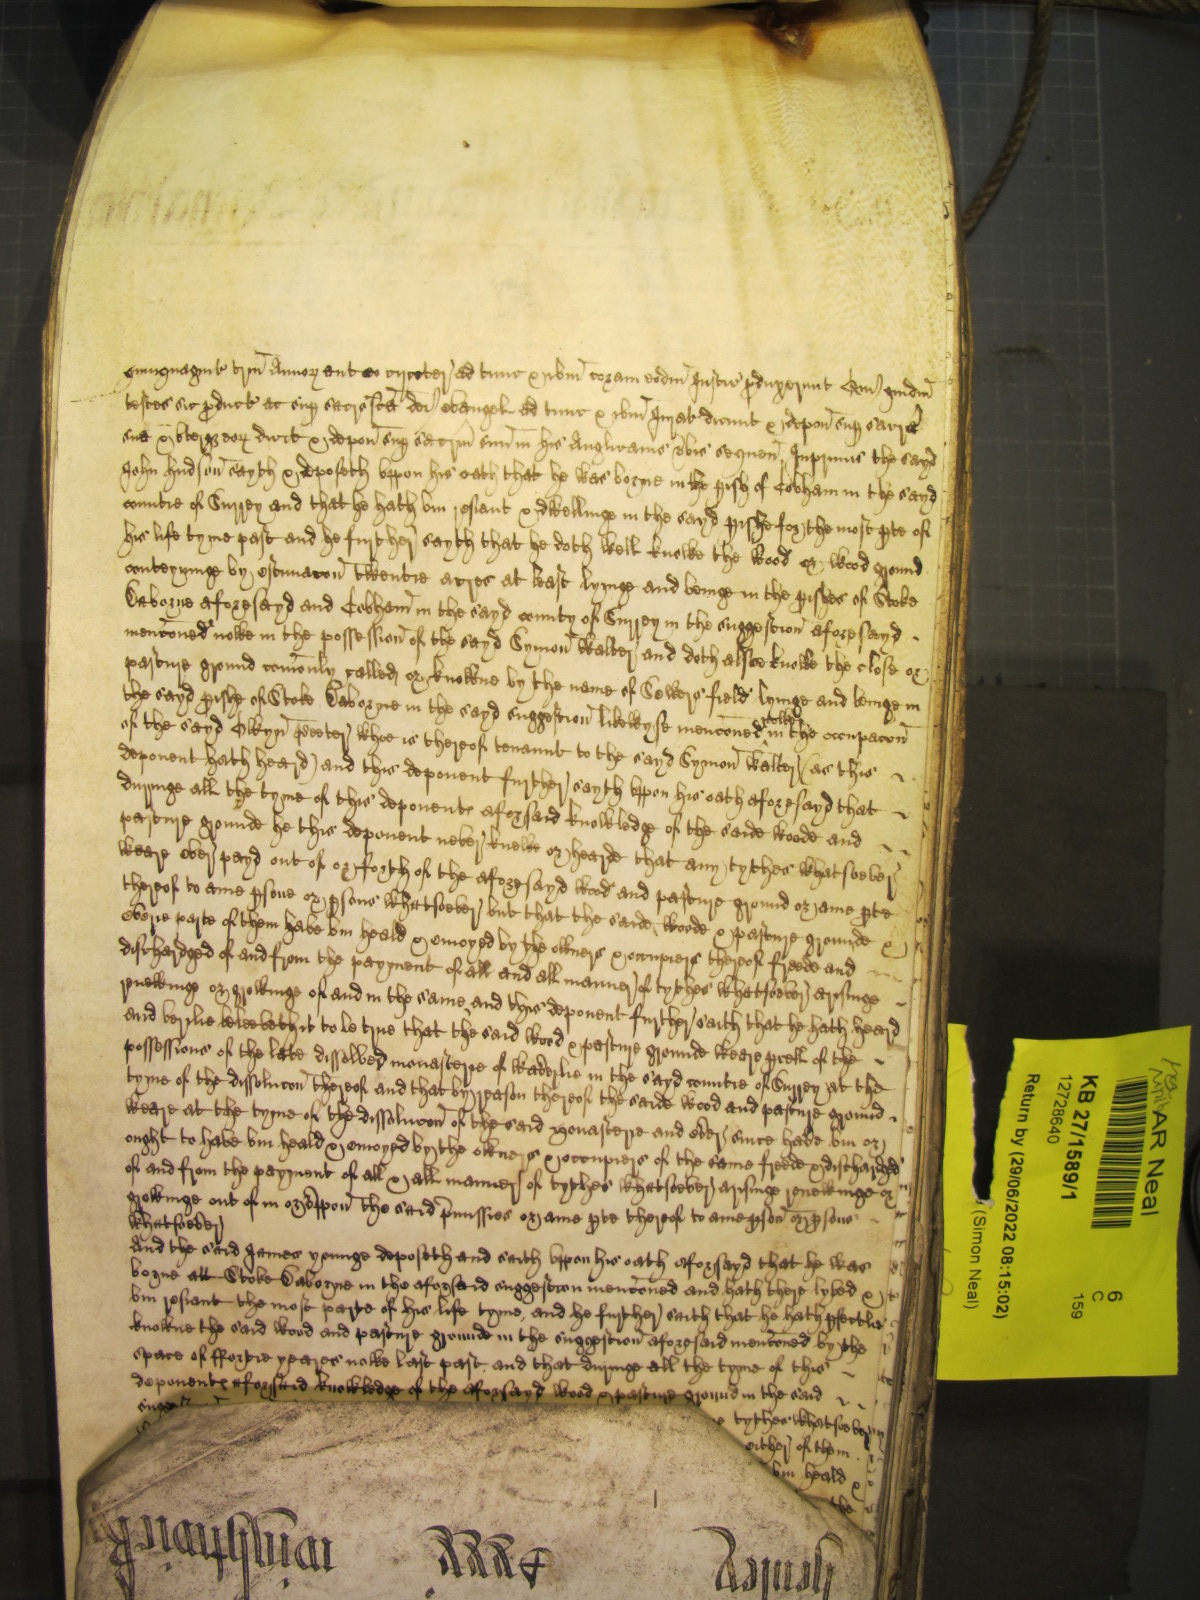 quinquaginta trm Annor ent eo circiter ad tunc & ibm coram eodm Justic pduxerunt Qui quidm
testes sic pduct ac sup sacrs sca dei evangel ad tunc & ibm jurat dicunt & depon sup sacra
sua & uterq eor dicit & depon sup sacrm suu in his Anglicanis vbis sequen, Inprimis the sayd
John Hudson sayth & deposeth uppon his oath that he was borne in the pish of Cobham in the sayd
countie of Surrey and that he hath bin resiant & dwellinge in the sayd pishe for the most pte of
his life tyme past and he further sayth that he doth well knowe the wood or wood ground
conteyninge by estimacon twentie acres at least lyinge and beinge in the pishes of Stoke
Daborne aforesayd and Cobham in the sayd county of Surrey in the suggestion aforesayd
mencioned nowe in the possession of the sayd Symon Walter and doth alsoe knowe the close or
pasture ground comonly called or knowne by the name of Sewers field lyinge and beinge in
the sayd pishe of Stoke Daborne in the sayd suggestion likewyse mencioned nowe in the occupacon
of the sayd Peeter whoe is thereof tenannt to the sayd Symon Walter (as this
deponent hath heard) and this deponent further sayth uppon his oath aforesayd that
duringe all the tyme of this deponents aforsaid knowledge of the saide woode and
pasture grounde he this deponent never knewe or hearde that any tythes whatsoever
weare ever payd out of or forth of the aforesayd wood and pasture ground or anie pte
thereof to anie psone or psons whatsoever but that the saide woode & pasture grounde &
everie parte of them have bin heald & enioyed by the owners & occupiers thereof freede and
dischardged of and from the payment of all and all manner of tythes whatsoever arisinge
renewinge or growinge of and in the same, and this deponent further saith that he hath heard
and verilie beleeveth it to be true that the said wood & pasture grounde weare pcell of the
possessions of the late dissolved monasterie of Waverlie in the sayd countie of Surrey at the
tyme of the dissolucon thereof and that by reason thereof the saide wood and pasture ground
weare at the tyme of the dissolucon of the said monasterie and ever since have bin or
ought to have bin heald & enioyed by the owners & occupiers of the same freede & dischardged
of and from the payment of all & all manner of tythes whatsoever arisinge renewinge or
growinge out of in or uppon the said pmisses or anie pte thereof to anie pson or psons
whatsoever
And the said James younge deposeth and saith uppon his oath aforsayd that he was
borne att Stoke Daborne in the aforsaid suggestion mencioned and hath there lyved &
bin resiant the most parte of his life tyme, and he further saith that he hath pfectlie
knowne the said wood and pasture grounde in the suggestion aforesaid mencioned by the
space of ffortie yeares nowe last past, and that duringe all the tyme of this
deponents aforsaid knowledge of the aforsayd wood & pasture ground in the said
tythes whatsoever
either of them
bin heald &
the
henley
winshurck
AR Neal
KB 27/1589/1
12728640
Return by (29/06/2022 08:15:02)
(Simon Neal)
6
C
159